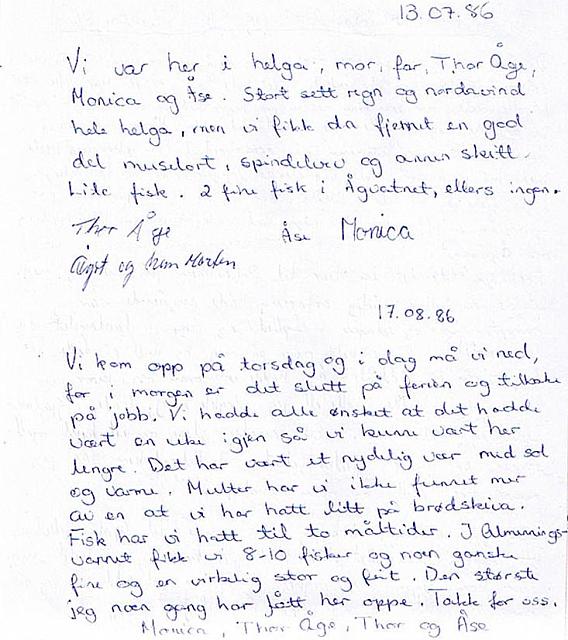 13.07.86
Vi var her i helga, mor, far, Thor Åge,
Monica og Åse. Stort sett regn og nordavind
hele helga, men vi fikk da fjernet en god
del muselort, spindelvev og annen skitt.
Lite fisk. 2 fine fisk i Ågvatnet, ellers ingen.
Thor Åge Åse Monica
og
17.08.86
Vi kom opp på torsdag og i dag må vi ned,
for i morgen er det slutt på ferien og tilbake
på jobb. Vi hadde alle ønsket at det hadde
vært en uke igjen så vi kunne vært her
lengre. Det har vært et nydelig vær med sol
og varme. Multer har vi ikke funnet mer
av en at vi har hatt litt på brødskeiva.
Fisk har vi hatt til to måltider. I Almennings-
vannet fikk vi 8-10 fisker og noen ganske
fine og en virkelig stor og feit. Den største
jeg noen gang har fått her oppe. Takk for oss.
Monica, Thor Åge, Thor og Åse